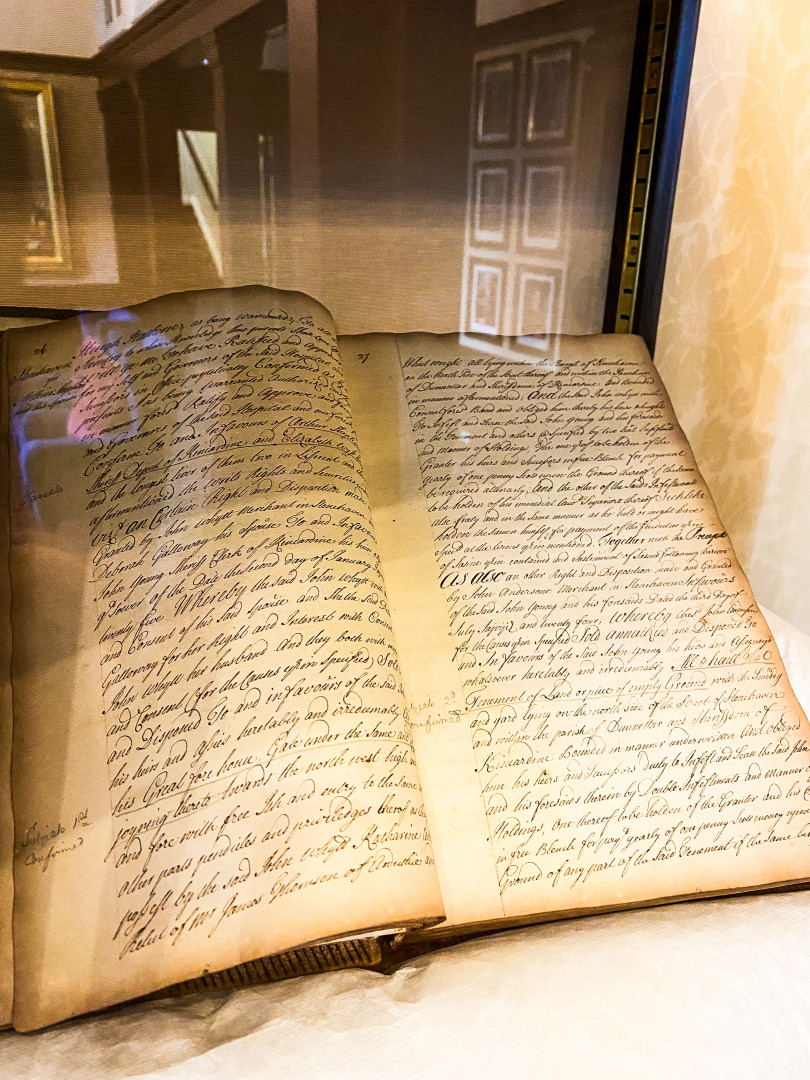 26
as being warranted, To all
for my Self and Governors of the Said Hospital
Sucessors in Office, perpetually Confirmed As
presents as being Warranted Authorized
in manner foresd Ratify and Approve and for
and Governors of the said Hospital and our
Confirme To and In favours of Arthur
Sheriff Deput of Kincardine and Elizabeth
and the longest liver of them two in Liferent and
aftermentioned the Writs Rights and Securities
an Certain Right and Disposition made
Granted by John Whytt Merchant in Stonhaven
Deborah Galloway his Spouse To and In favours
John Young Sheriff Clerk of Kincardine his heirs
of Dower of the Date the Second day of January
twenty five Whereby the said John Whytt with
and Consent of his Said Spouse and She the said
Galloway for her Right and Interest with Consent
John Whytt her husband And they both with
and Consent for the Causes yrin Specified, Sold
and Disponed To and in favours of the said
his heirs and assignies heretably and irredeemably
his Great fore house, Gate under the Same and
joyning thereto towards the north west high
and fore with free Ish and entry to the Same
other parts pendicles and priviledges thereof as
possest by the said John Whytt Katharine
Relict of Mr James Thomson of Arduthie
Subjects 1st
Confirmed
27
What wright all lying within the Burgh of Stonehaven
on the North Side of the Street thereof and within the Parochine
of Dunnottar and Sheriffdome of Kincardine And Bounded
in manner aftermentioned, And the Said John Whytt with
Consent foresd Bound and Obliged him thereby his heirs
To Infeft and Sease the Said John Young and his foresaids
in the Tenement and others @specified by two Infeftments
and manner of Holdings, The one yrof to be holden of the
Granter his heirs and Sucessors in free Blench for payment
yearly of one penny Scots upon the Ground thereof if the same
be required allenarly, And the other of the Said Infeftments
to be holden of his immediat Lawll Superiors thereof Sicklike
also freely and in the Same manner as he held or might have
holden the Samen himself, for payment of the feuduties yrin
Specified at the terms yrin mentioned. Together with the Precept
of Saisine yrin contained and Instrument of Saisine following thereon
As also an other Right and Disposition made and Granted
by John Anderson Merchant in Stonhaven In favours
of the said John Young and his foresaids Dated the third Day of
July and twenty four, Whereby the sd John Anderson
for the Causes yrin Specified Sold annailzied and Disponed To
and In favours of the Said John Young his heirs and Assignys
whatsoever heretably and irredeemably All &
Tenement of Land or piece of empty Ground with the
and yard lying on the north side of the Street of Stonhaven
and within the parish of Dunnotter and Sheriffdom of
Kincardine Bounded in manner underwritten And Obliged
him his heirs and Sucessors Duly to Infeft and Sease the said John
and his foresaids therein by Double Infeftments and manner of
Holdings, One thereof to be holden of the Granter and his
in free Blench for payt yearly of one penny Scots money upon
Ground of any part of the Said Tenement if the Same be
Subjects 2d
Confirmed